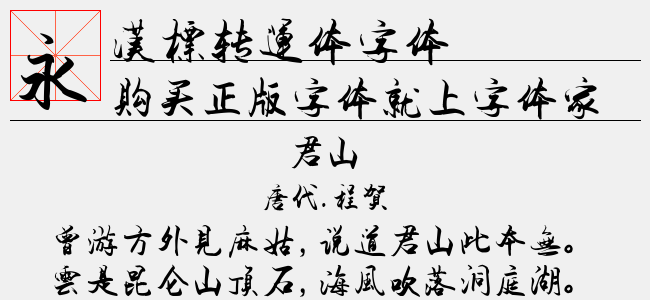 永
漢標转運体字体
購买正版字体就上字体家
君山
唐代.程賀
曾游方外見麻姑,说道君山此本無。
雲是昆仑山頂石,海風吹落洞庭湖。